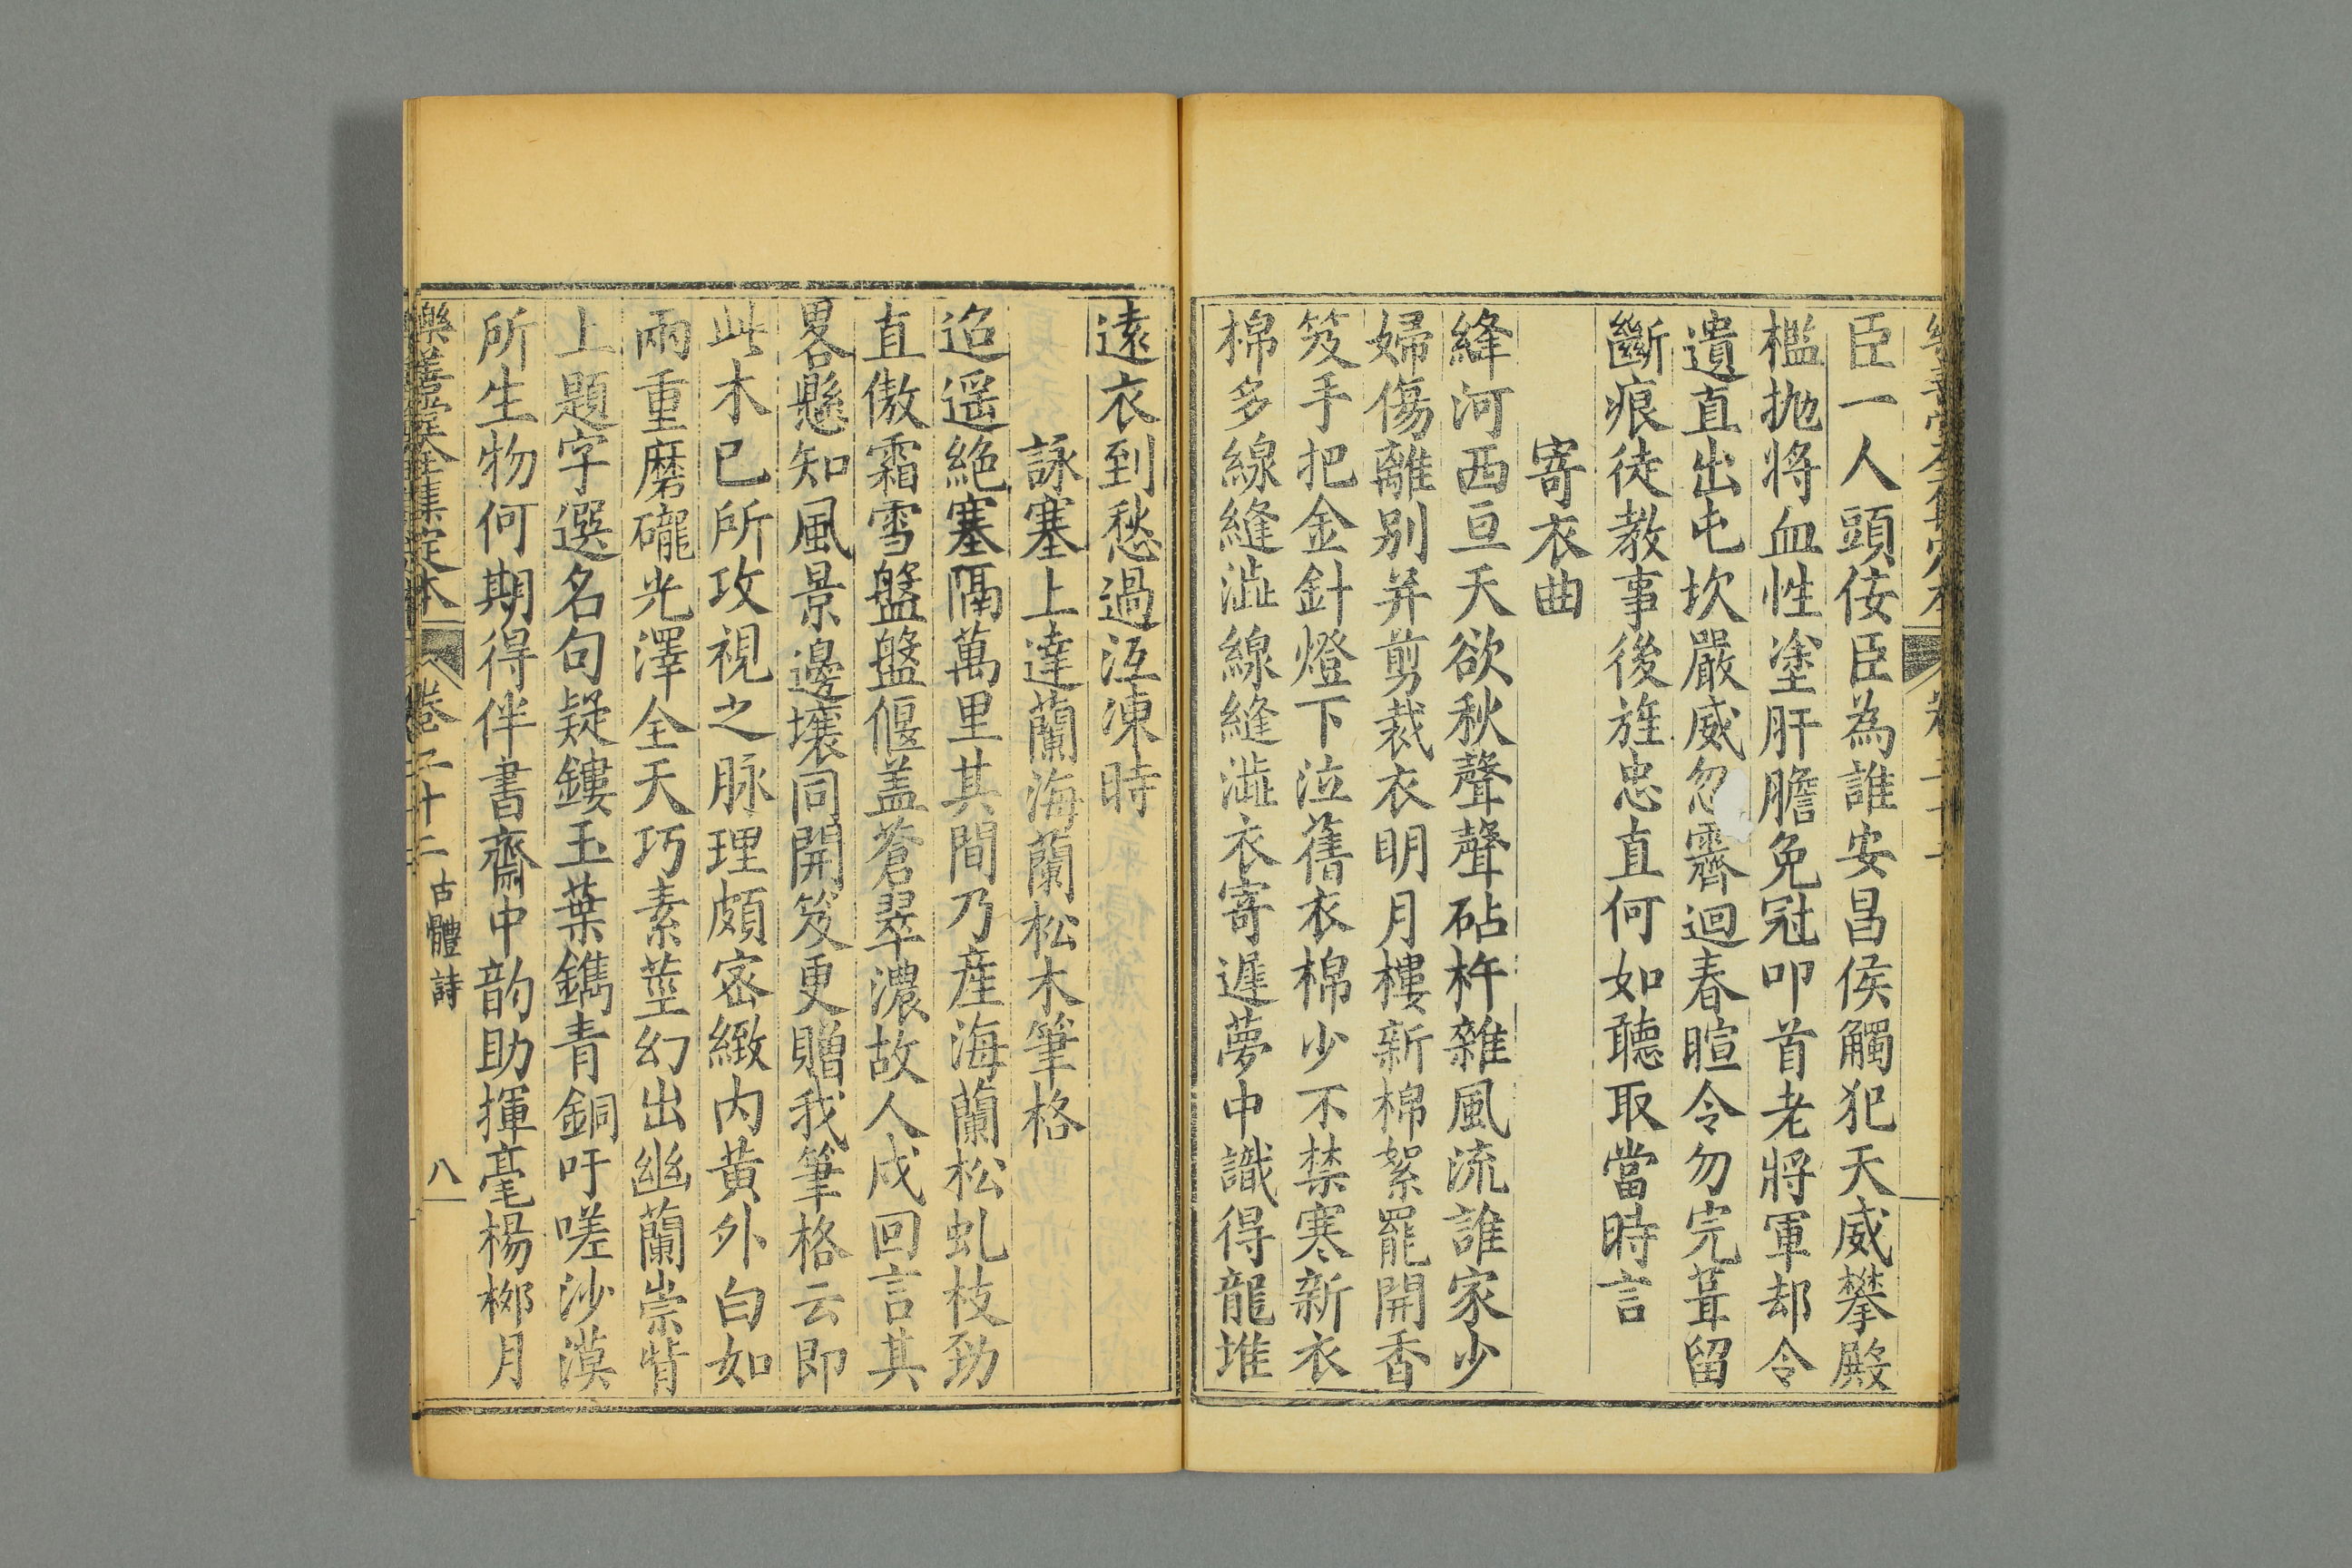 臣一人頭佞臣為誰安昌侯觸犯天威攀殿
檻抛將血性塗肝膽免冠叩首老將軍却令
遺直出屯坎嚴威忽霽迴春暄令勿完葺留
斷痕徒教事後旌忠直何如聽取當時言
寄衣曲
絳河西亘天欲秋聲聲砧杵雜風流誰家少
婦傷離別并剪裁衣明月樓新棉絮罷開香
笈手把金針燈下泣舊衣棉少不禁寒新衣
棉多線縫澁線縫澁衣寄遲夢中識得龍堆
遠衣到愁過沍凍時
詠塞上達蘭海蘭松木筆格
迢遥絶塞隔萬里其間乃産海蘭松虬枝勁
直傲霜雪盤盤偃盖蒼翠濃故人戍回言其
畧懸知風景邊壤同開笈更贈我筆格云即
此木已所攻視之脉理頗宻緻内黄外白如
兩重磨礲光澤全天巧素莖幻出幽蘭崇背
上題字選名句疑鏤玉葉鐫青銅吁嗟沙漠
所生物何期得伴書齋中韵助揮毫楊桞月
樂善堂全集定本 卷二十二 古體詩 八